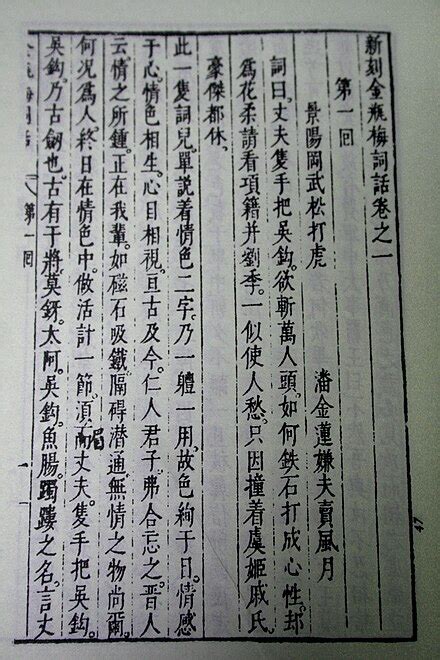 新刻金瓶梅詞話卷之一
第一回
景陽岡武松打虎　潘金蓮嫌夫賣風月
詞曰。丈夫隻手把吳鈎。欲斬萬人頭。如何鉄石打成心性。却
爲花柔請看項籍并劉季。一似使人愁。只因撞着虞姬戚氏。
豪傑都休。
此一隻詞兒單說着情色二字。乃一體一用。故色絢于目。情感
于心。情色相生。心目相視。亘古及今。仁人君子。弗合忘之。晋人
云。情之所鍾。正在我輩。如磁石吸鐵。隔碍潜通。無情之物尚爾。
何況爲人。終日在情色中。做活計一節。須而丈夫。隻手把吳鈎。
吳鈎。乃古劒也。古有干將。莫釾。太阿。吳鈎。魚腸。躅之名。言丈
第一回
47